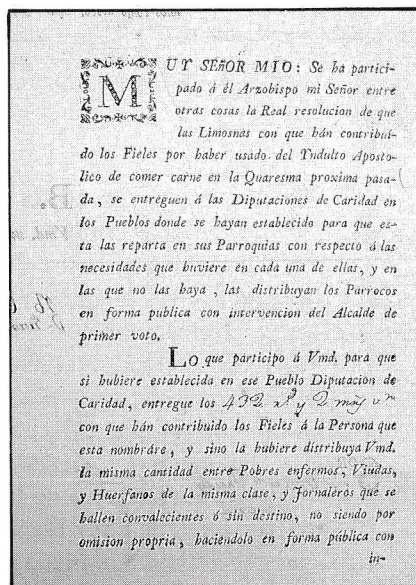 MUY SEÑOR MIO: Se ha partici-
pado á él Arzobispo mi Señor entre
otras cosas la Real resolucion de que
las Limosnas con que hán contribuí-
do los Fieles por haber usado del Yndulto Aposto-
lico de comer carne en la Quaresma proxima pasa-
da, se entreguen á las Diputaciones de Caridad en
los Pueblos donde se hayan establecido para que es-
ta las reparta en sus Parroquias con respecto á las
necesidades que huviere en cada una de ellas, y en
las que no las haya, las distribuyan los Parrocos
en forma publica con intervencion del Alcalde de
primer voto.
Lo que participo á Vmd. para que
si hubiere establecida en ese Pueblo Diputacion de
Caridad, entregue los 432 r.s y 2 mrs vn
con que hán contribuido los Fieles á la Persona que
esta nombráre, y sino la hubiere distribuya Vmd.
la misma cantidad entre Pobres enfermos, Viudas,
y Huerfanos de la misma clase, y Jornaleros que se
hallen convalecientes ó sin destino, no siendo por
omision propria, haciendolo en forma pública con
in-